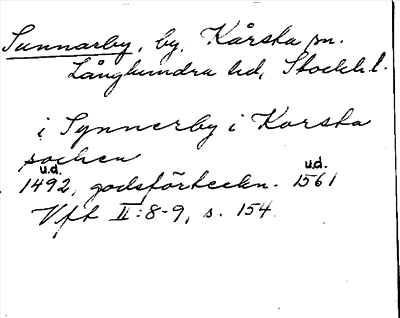 Sunnarby, by, Kårsta sn.
Långhundra hd, Stockh.l.
i Synnerby i Karsta
sochen
u.d. u.d.
1492, godsförteckn. 1561
Vft II:8-9, s. 154